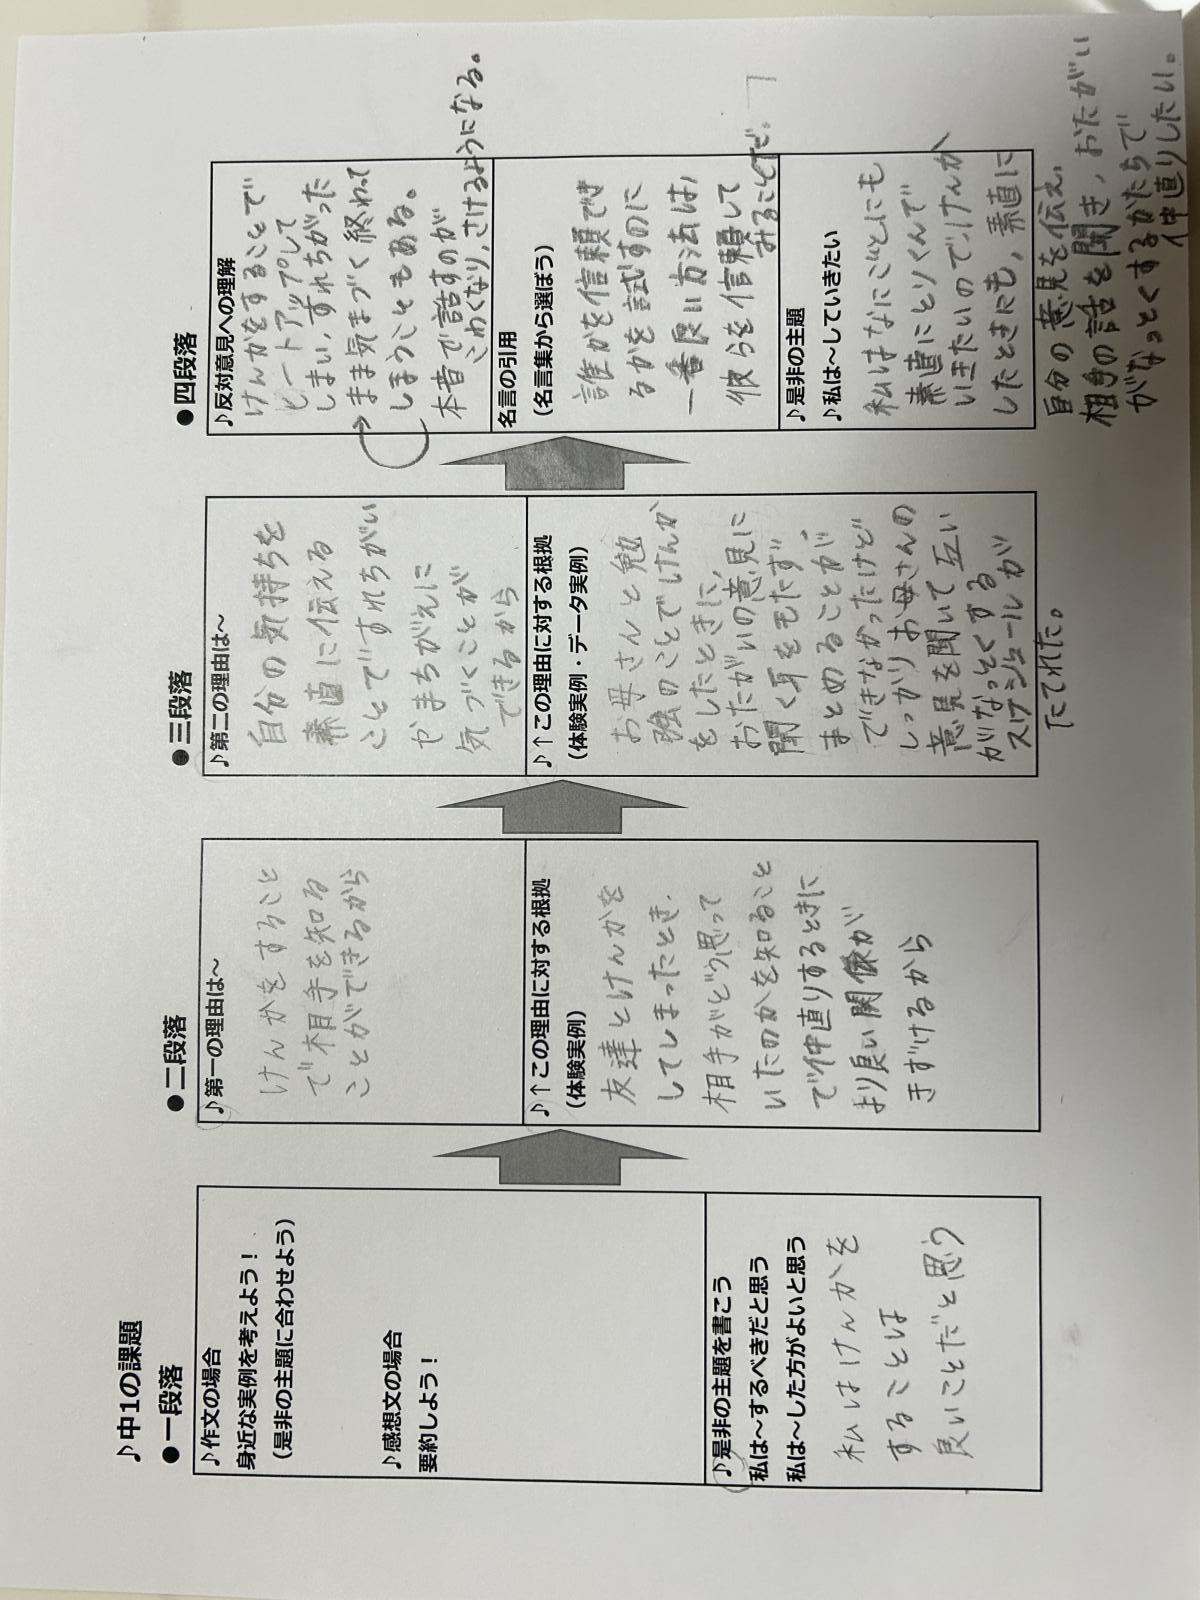 ♪中1の課題
●一段落
♪作文の場合
身近な実例を考えよう！
（是非の主題に合わせよう）
♪感想文の場合
要約しよう！
♪是非の主題を書こう
私は～するべきだと思う
私は～した方がよいと思う
私はけんかを
することは
良いことだと思う
●二段落
♪第一の理由は～
けんかをすること
で相手を知る
ことができるから
♪↑この理由に対する根拠
（体験実例）
友達とけんかを
してしまったとき、
相手がどう思って
いたのかを知ること
で仲直りするときに
より良い関係が
きずけるから
●三段落
♪第二の理由は～
自分の気持ちを
素直に伝える
ことですれちがい
やまちがえに
気づくことが
できるから
♪↑この理由に対する根拠
（体験実例・データ実例）
お母さんと勉
強のことでけんか
をしたときに、
おたがいの意見に
聞く耳をもたず
まとめることが
できなかったけど
しっかりお母さんの
意見を聞いて互い
がなっとくする
スケジュールが
たてれた。
●四段落
♪反対意見への理解
けんかをすることで
ヒートアップして
しまい、すれちがった
まま気まづく終わって
しまうこともある。
本音で話すのが
こわくなり、さけるようになる。
名言の引用
（名言集から選ぼう）
誰かを信頼でき
るかを試すのに
一番良い方法は、
彼らを信頼して
みることだ。」
♪是非の主題
♪私は～していきたい
私はなにごとにも
素直にとりくんで
いきたいので、けんか
したときにも、素直に
自分の意見を伝え、
相手の話を聞き、おたがい
がなっとくするかたちで
仲直りしたい。